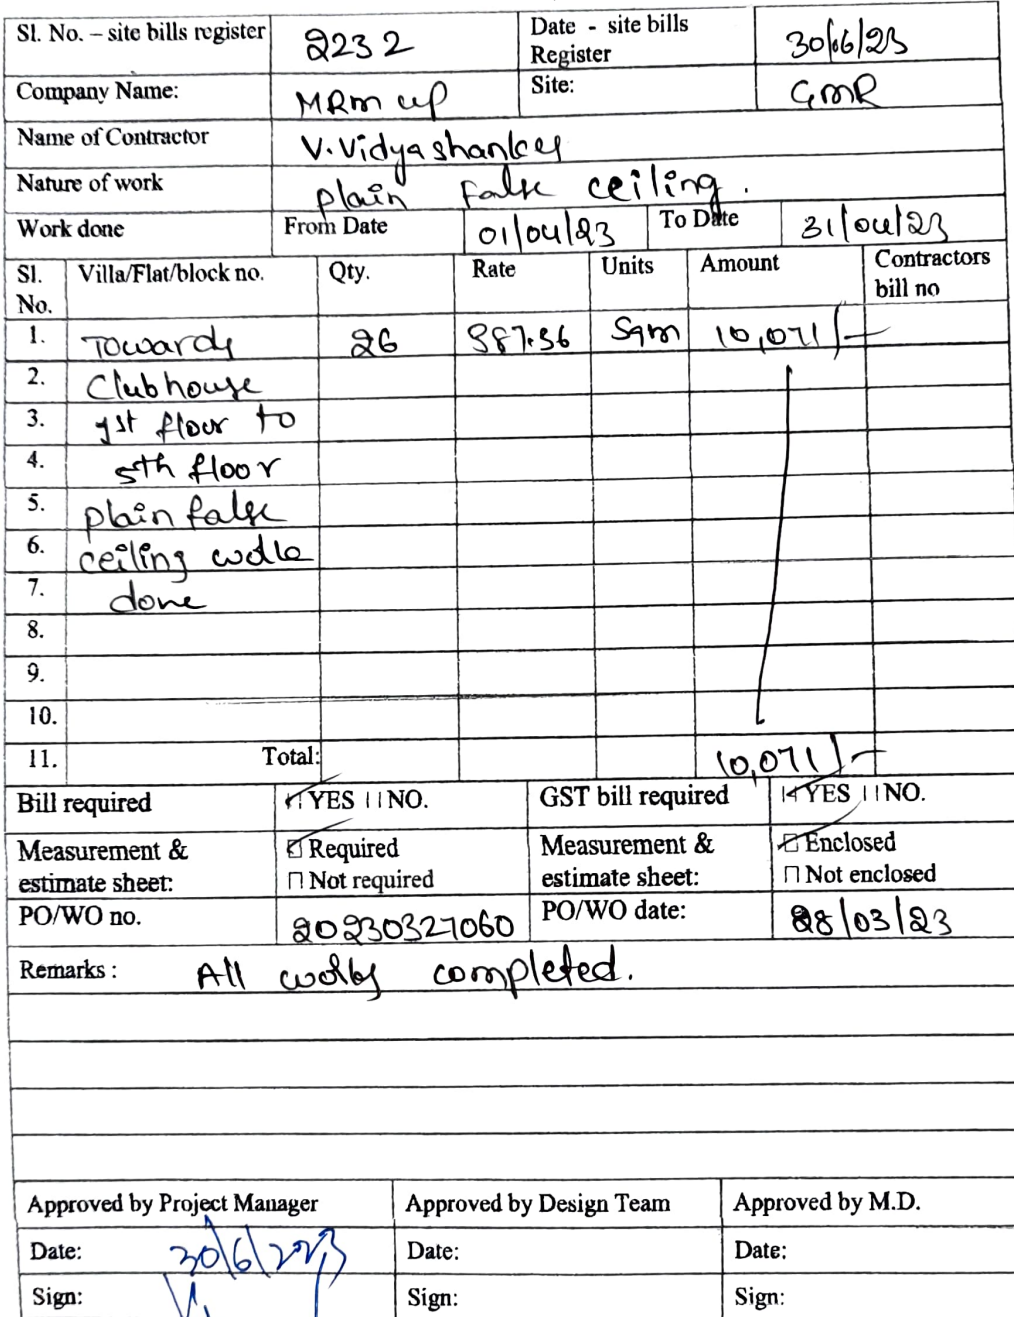 Sl. No. – site bills register 2232 Date - site bills Register 30/06/23
Company Name: MRM UP Site: GMR
Name of Contractor V. Vidyashanker
Nature of work plain false ceiling.
Work done From Date 01/04/23 To Date 31/04/23
Sl. No. Villa/Flat/block no. Qty. Rate Units Amount Contractors bill no
1. Towards 26 387.36 Sqm 10,071/-
2. Clubhouse
3. 1st floor to
4. 5th floor
5. plain false
6. ceiling work
7. done
8.
9.
10.
11. Total: 10,071/-
Bill required YES NO. GST bill required YES NO.
Measurement & estimate sheet: Required Not required Measurement & estimate sheet: Enclosed Not enclosed
PO/WO no. 20230327060 PO/WO date: 28/03/23
Remarks : All works completed.
Approved by Project Manager Approved by Design Team Approved by M.D.
Date: 30/6/2023 Date: Date:
Sign: Sign: Sign: